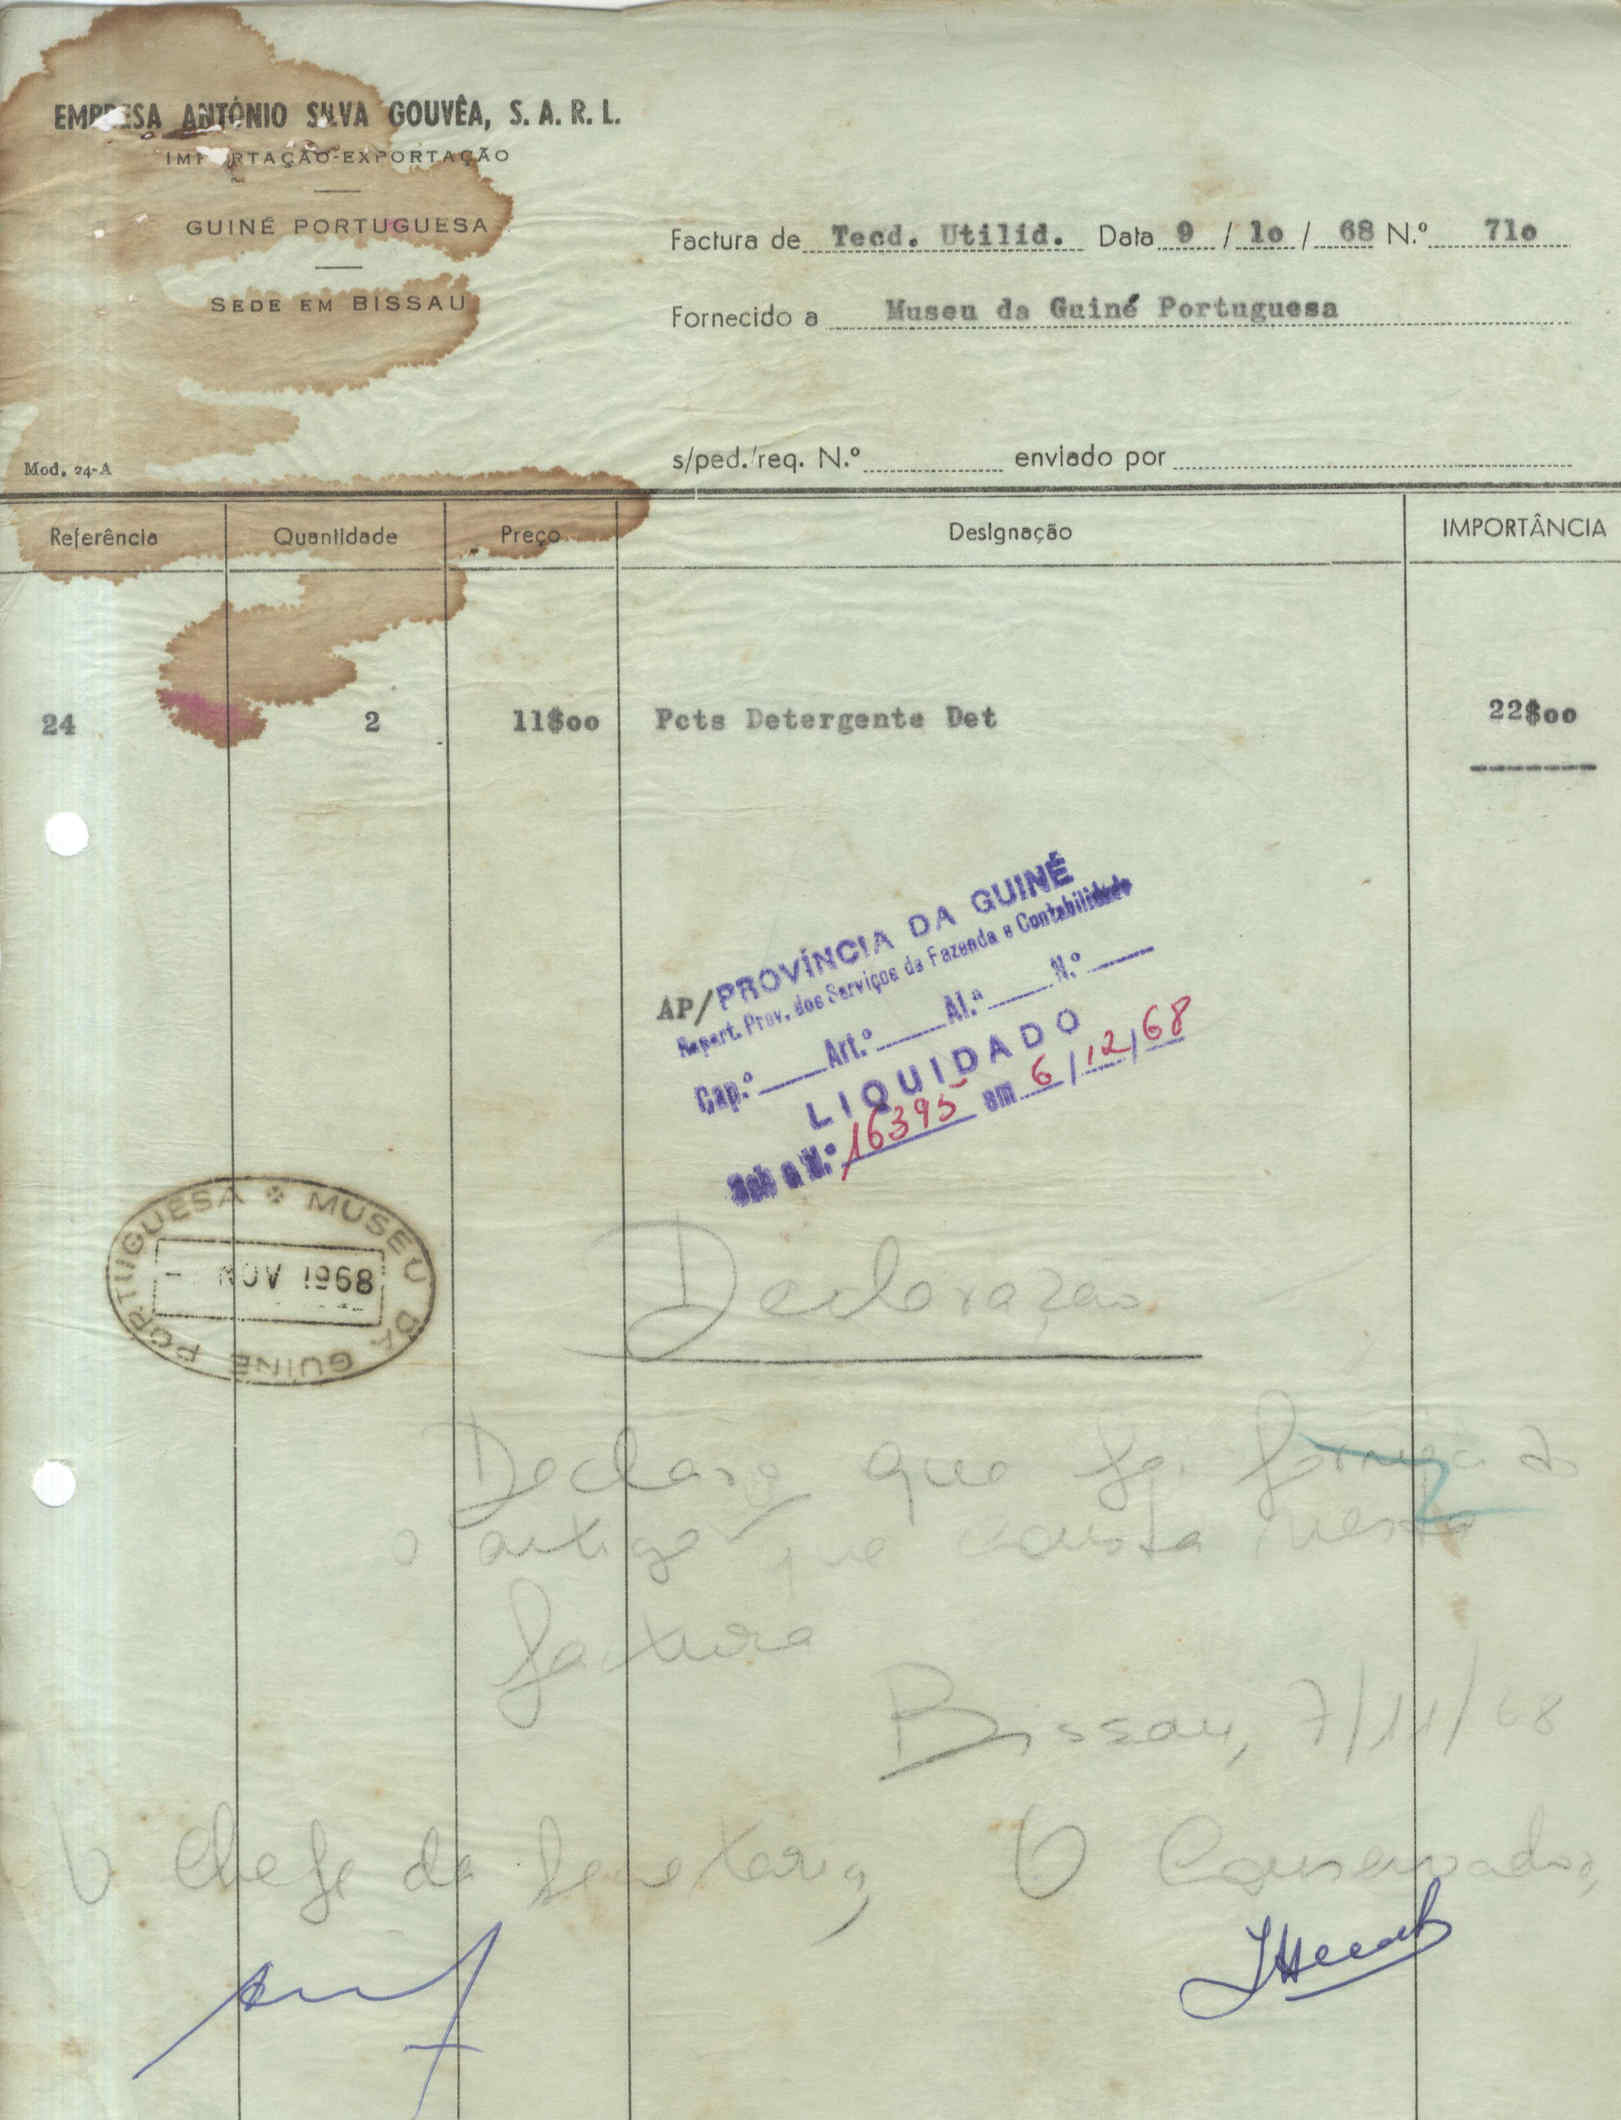 EMPRESA ANTÓNIO SILVA GOUVÊA, S. A. R. L.
IMPORTAÇÃO-EXPORTAÇÃO
GUINÉ PORTUGUESA
SEDE EM BISSAU
Factura de Tecd. Utilid. Data 9 / 1o / 68 N.º 71o
Fornecido a Museu da Guiné Portuguesa
Mod. 24-A
s/ped./req. N.º enviado por
Referência Quantidade Preço Designação IMPORTÂNCIA
24 2 11$oo Pcts Detergente Det 22$oo
AP/
PROVÍNCIA DA GUINÉ
Repart. Prov. dos Serviços de Fazenda e Contabilidade
Cap.º Art.º Al.ª N.º
LIQUIDADO
Sob o N.º 16395 em 6/12/68
MUSEU DA GUINÉ PORTUGUESA
NOV 1968
Declaração
Declaro que foi
o artigo que consta nesta
factura
Bissau, 7/11/68
O Chefe da Secretaria, O Conservador,